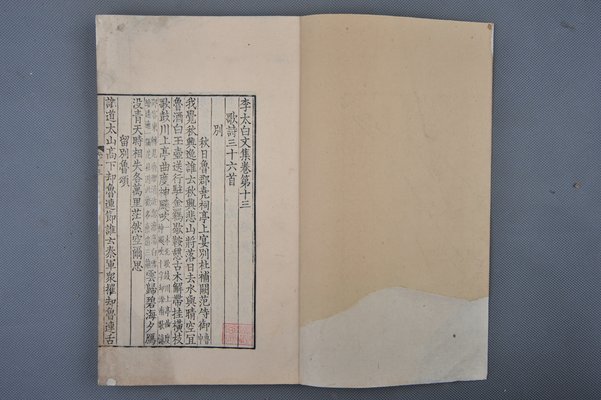 李太白文集卷第十三
歌詩三十六首
別
秋日魯郡堯祠亭上宴別杜補闕范侍御
我覺秋興逸誰云秋興悲山將落日去水與晴空宜
魯酒白玉壺送行駐金羈歇鞍憩古木解帶挂橫枝
歌鼓川上亭曲度神飇吹
雲歸碧海夕鴈
沒青天時相失各萬里茫然空爾思
留別魯頌
誰道太山高下却魯連節誰云秦軍衆摧却魯連舌